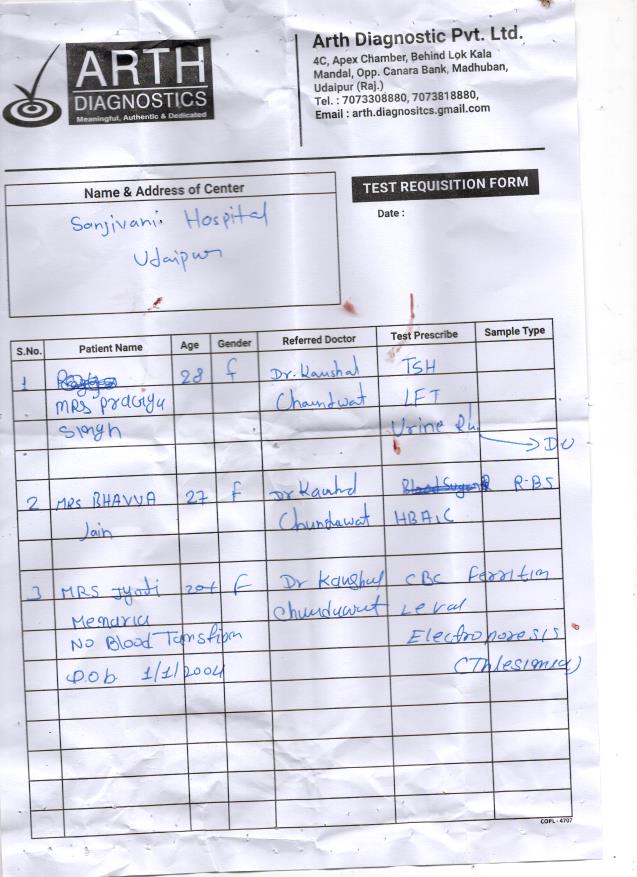 ARTH
DIAGNOSTICS
Meaningful, Authentic & Dedicated
Arth Diagnostic Pvt. Ltd.
4C, Apex Chamber, Behind Lok Kala
Mandal, Opp. Canara Bank, Madhuban,
Udaipur (Raj.)
Tel. : 7073308880, 7073818880,
Email : arth.diagnositcs.gmail.com
Name & Address of Center
TEST REQUISITION FORM
Sanjivani Hospital
Udaipur
Date :
S.No. Patient Name Age Gender Referred Doctor Test Prescribe Sample Type
1 28 f Dr. Kaushal TSH
MRS Pragya Chundwat LFT
Singh Urine
2 MRS BHAVVA 27 f Dr R-BS
Jain Chundawat HBA1C
3 MRS Jyoti F Dr Kaushal CBC Ferritin
Menaria Chundawat Leval
NO Blood Electroporesis
D.O.b 1/1/2004 (Thlesimia)
COPL - 4707